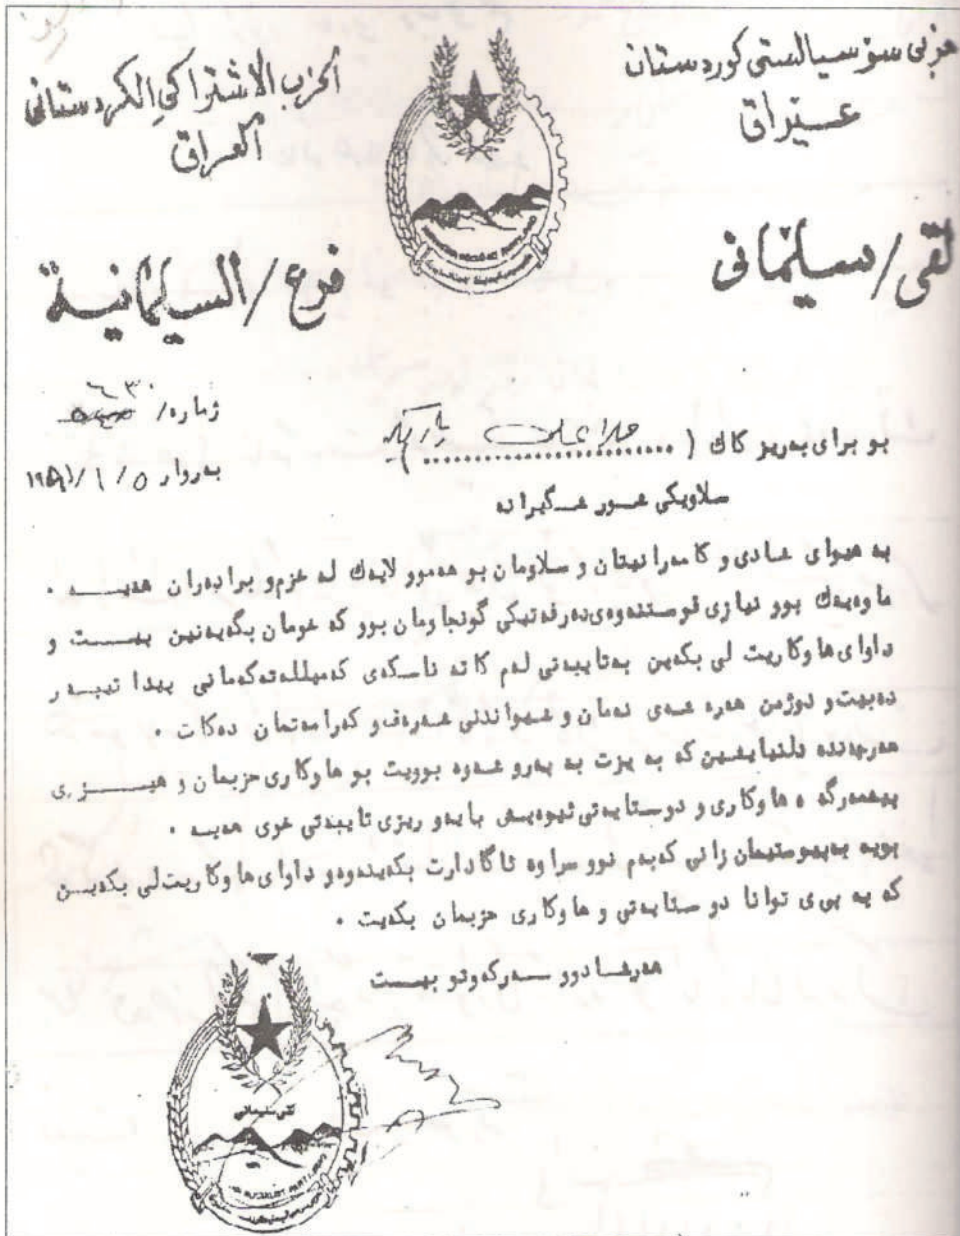 حزبی سۆسیالستی کوردستان
عێراق
الحزب الاشتراكي الكردستاني
العراق
لقی/سلێمانی
فرع/السليمانية
ژماره/ ٦٣٠
بەروار ٥/١/
بو برای بەریز کاك ( مەلا عەلی )
سلاویکی شور شگیرانە
بە هیوای شادی و کامەرانیتان و سلاومان بو هەموو لایەك لە خزم و برادەران هەیـــە ٠
ماوەیەك بوو نیازی قوستنەوەی دەرفەتیکی گونجاومان بوو کە خومان بگەیەنین پیـــت و
داوای هاوکاریت لی بکەین بەتایبەتی لەم کاتە ناسکەی کەمیللەتەکەمانی پیدا تیپـەر
دەبیت و دوژمن هەرە شەی نەمان و شیواندنی شەرەف و کەرامەتمان دەکات ٠
هەرچەندە دلنیایشین کە بە یزت بە پەرو شەوە بوویت بو هاوکاری حزبمان و هیـــزی
پیشمەرگە ە هاوکاری و دوستایەتی ئیوەیش بایەو ریزی تایبەتی خوی هەیە ٠
بویە بەپیوستیمان زانی کەبەم نوو سراوە ئاگادارت بکەینەوەو داوای هاوکاریت لی بکەیــن
کە بە پی ی توانا دو ستایەتی و هاوکاری حزبمان بکەیت ٠
هەرشادوو ســەرکەوتو بیـــت
لقی سلیمانی